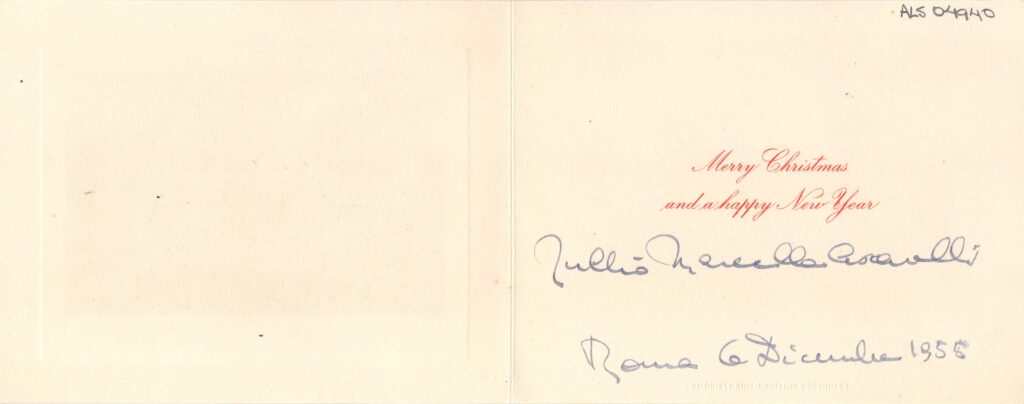 ALS 04940
Merry Christmas
and a happy New Year
Tullio Marcella Ascarelli
Roma 6 Dicembre 1955